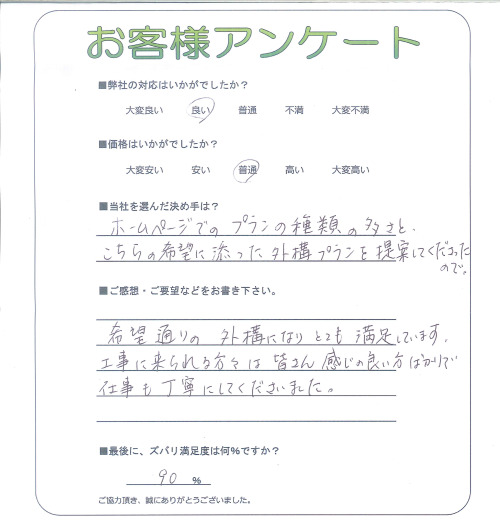 お客様アンケート
■弊社の対応はいかがでしたか？
大変良い 良い 普通 不満 大変不満
■価格はいかがでしたか？
大変安い 安い 普通 高い 大変高い
■当社を選んだ決め手は？
ホームページでの プランの種類の多さと、
こちらの希望に添った外構プランを提案してくださった
ので。
■ご感想・ご要望などをお書き下さい。
希望通りの 外構になり とても 満足しています。
工事に来られる方々は 皆さん 感じの良い方ばかりで
仕事も丁寧にしてくださいました。
■最後に、ズバリ満足度は何％ですか？
90 ％
ご協力頂き、誠にありがとうございました。